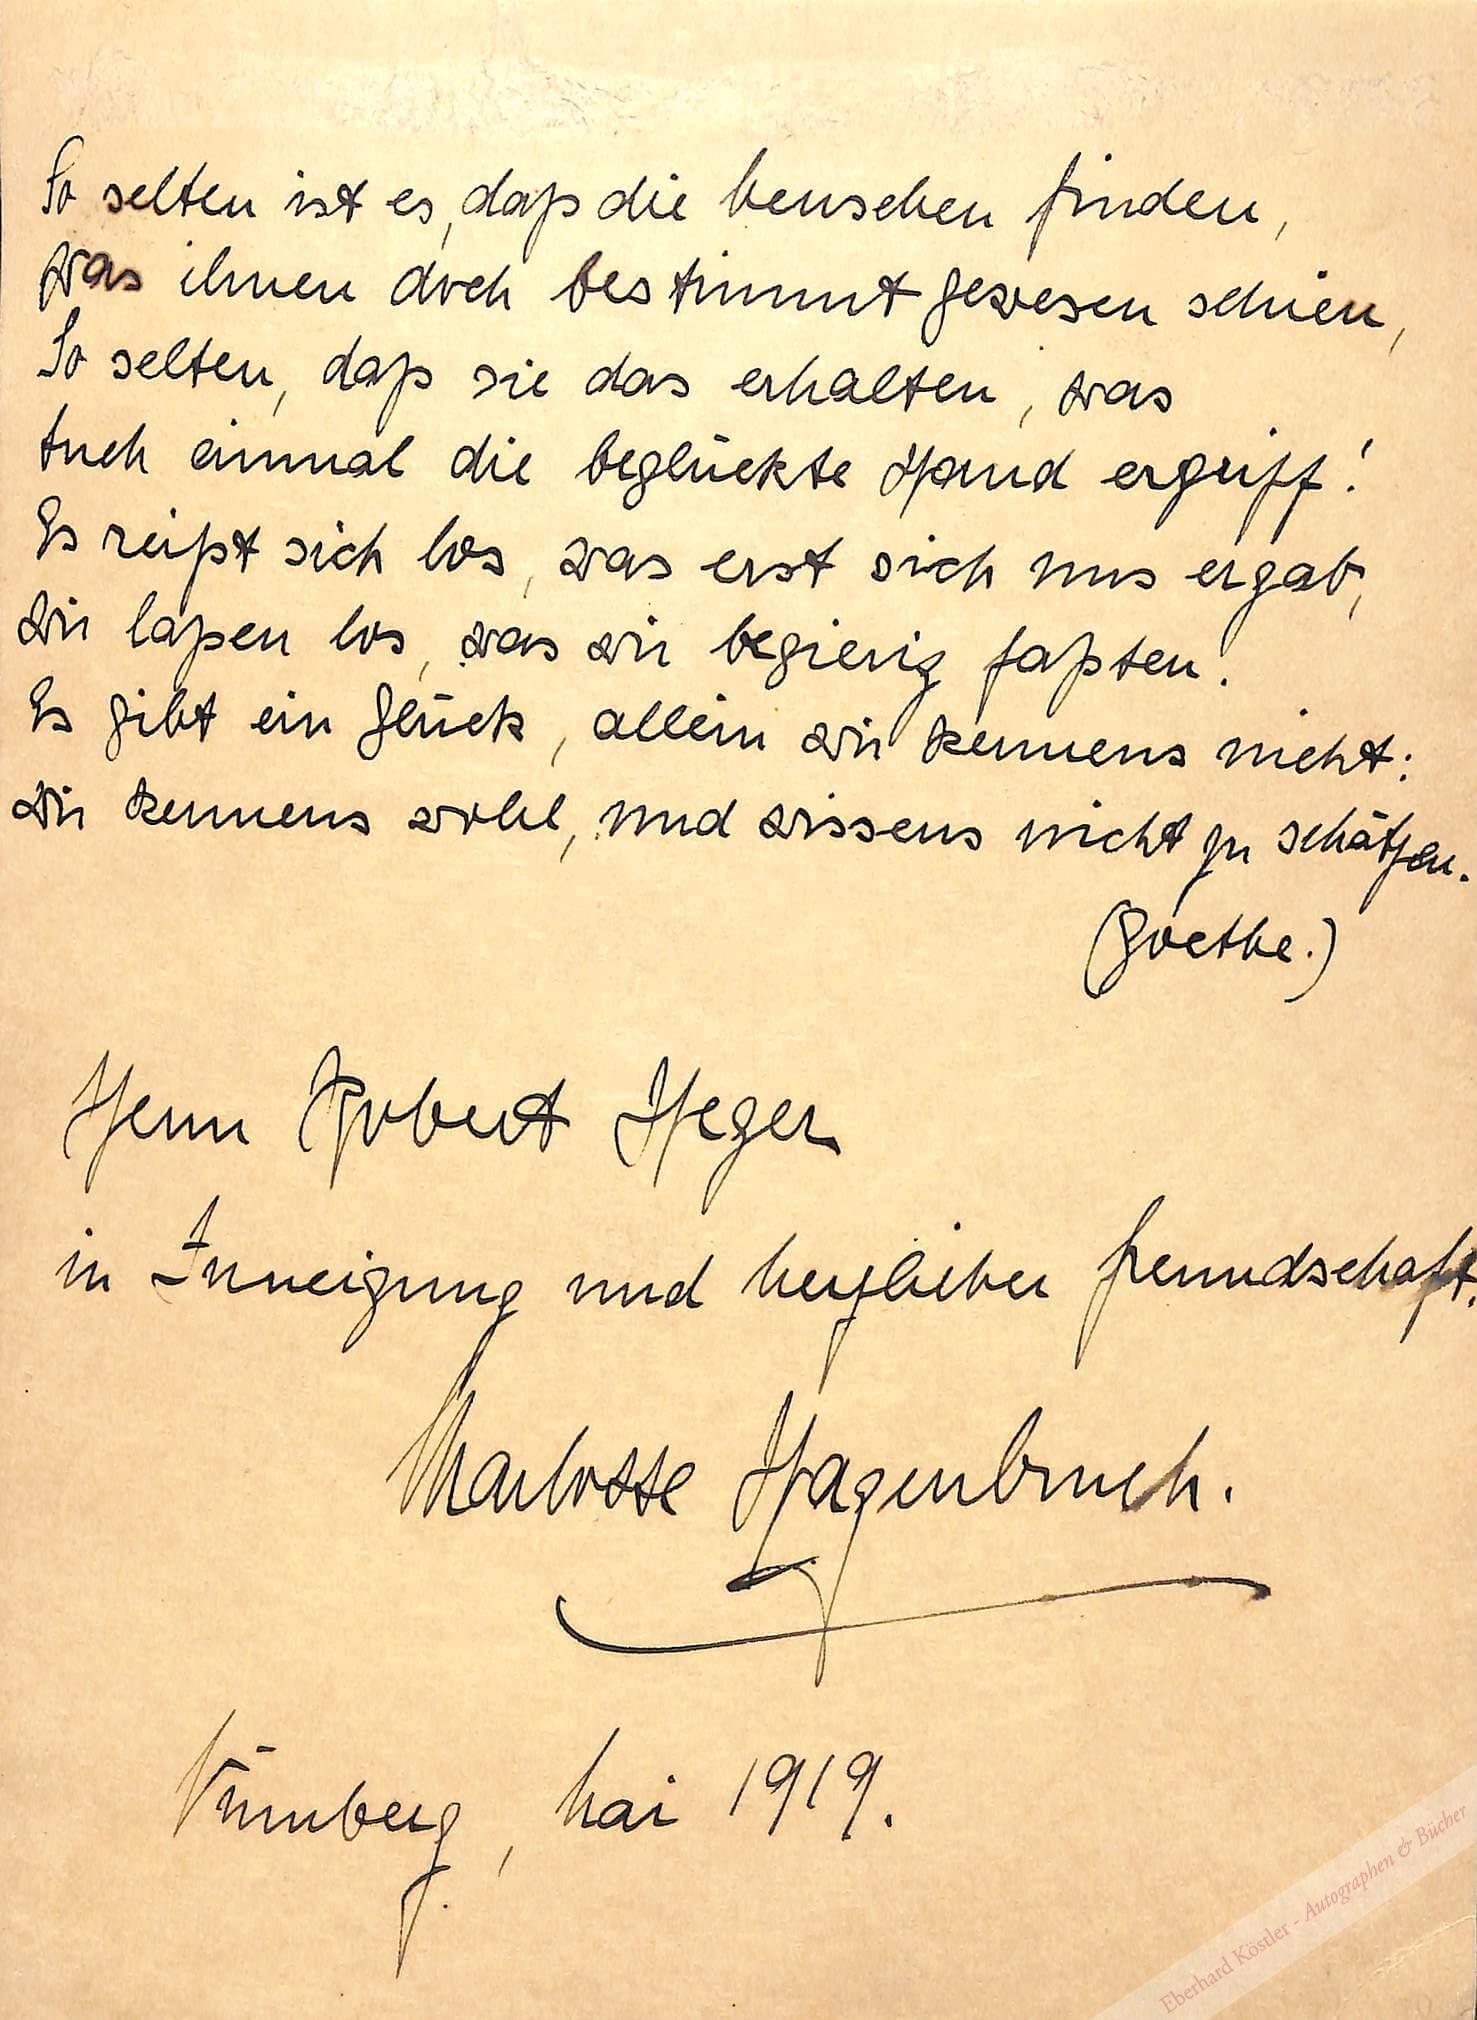 So selten ist es, daß die Menschen finden,
was ihnen doch bestimmt gewesen schien,
So selten, daß sie das erhalten, was
auch einmal die beglückte Hand ergriff!
Es reißt sich los, was erst sich uns ergab,
wir laßen los, was wir begierig faßten.
Es gibt ein Glück, allein wir kennens nicht:
wir kennens wohl, und wissens nicht zu schätzen.
(Goethe.)
Herrn Robert Heger
in Zuneigung und herzlieber Freundschaft.
Marlotte Hagenbruch.
Nürnberg, Mai 1919.
Eberhard Köstler - Autographen & Bücher